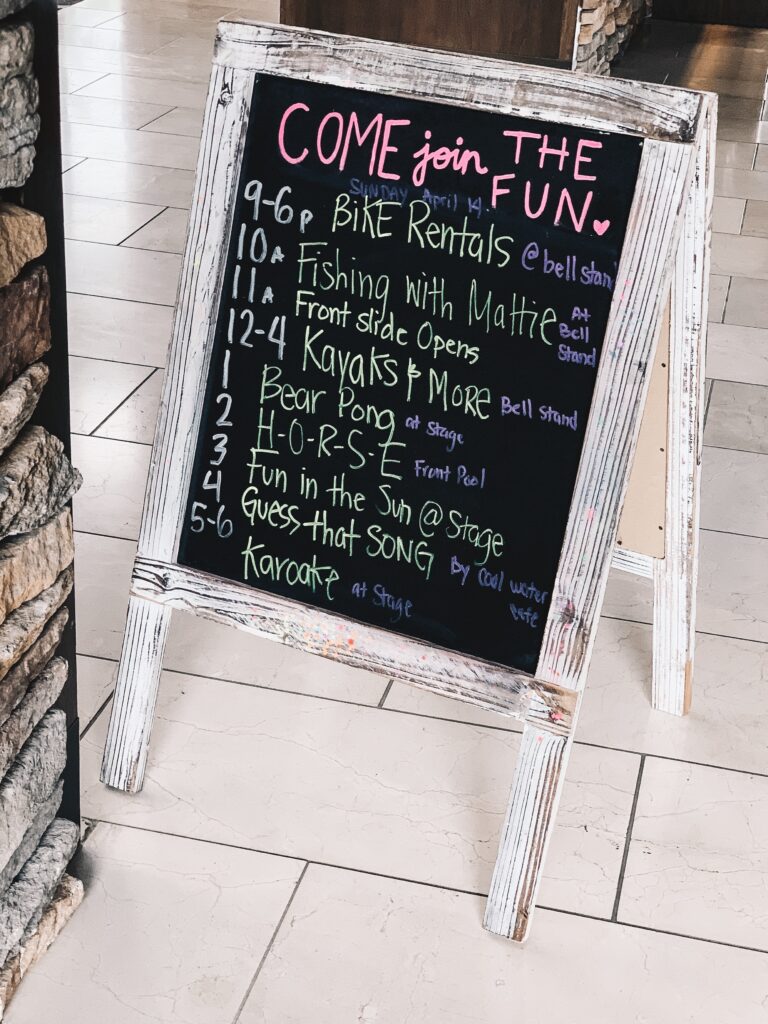 COME join THE FUN
SUNDAY April 14.
9-6P BiKE Rentals @bell stand
10A Fishing with Mattie At Bell Stand
11A Front slide Opens
12-4 Kayaks & MORE Bell Stand
1 Bear Pong at Stage
2 H-O-R-S-E Front Pool
3 Fun in the Sun @ Stage
4 Guess that SONG By Cool water
5-6 Karoake at Stage